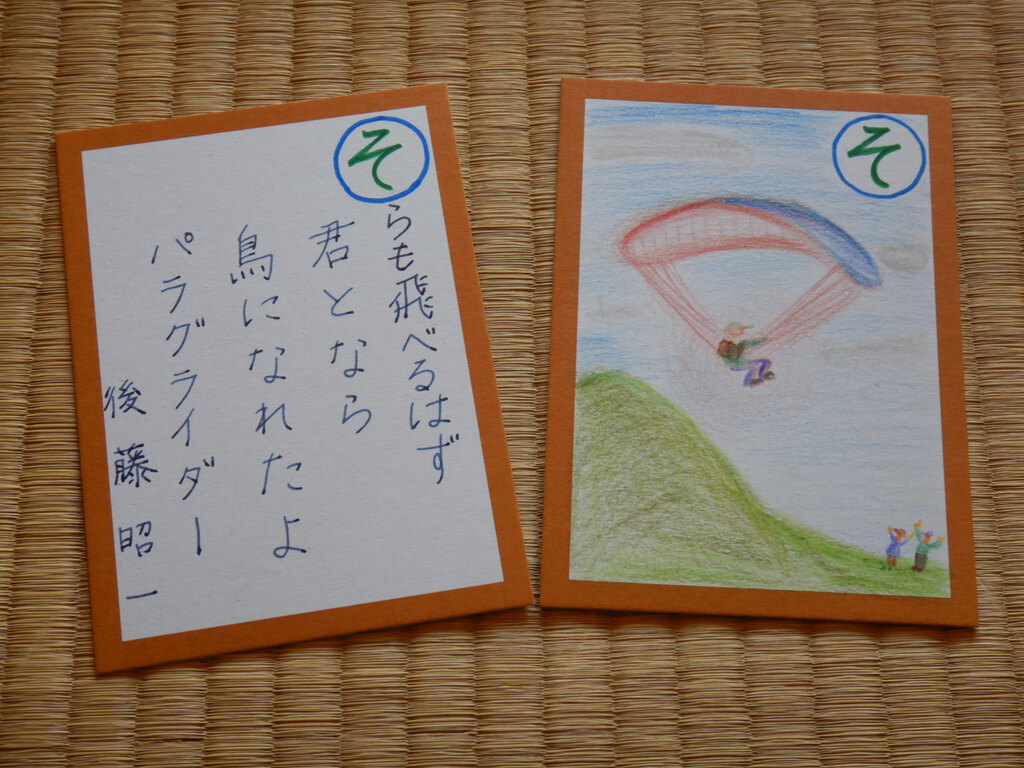 そ
らも飛べるはず
君となら
鳥になれたよ
パラグライダー
後藤昭一
そ